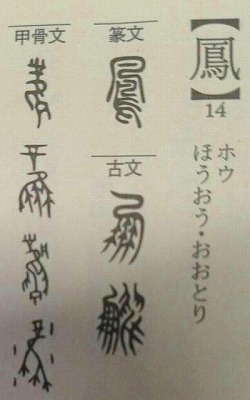 【鳳】
14
ホウ
ほうおう・おおとり
篆文
古文
甲骨文